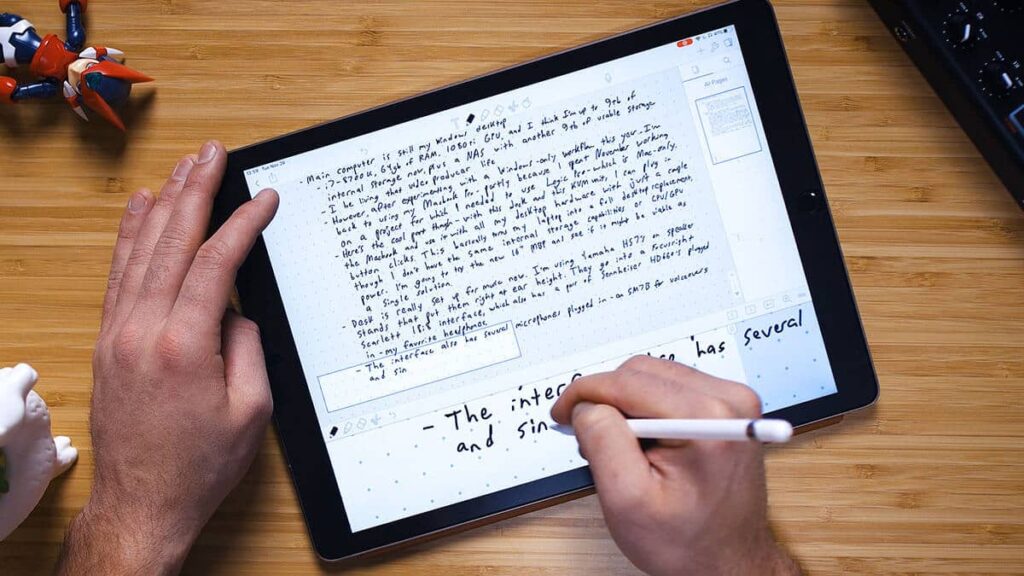 13:59 Tue Nov 26
All Pages
- Main computer is still my Windows desktop
- i7-8700K, 64gb of RAM, 1080ti GPU, and I think I'm up to 9tb of
internal storage now, plus a NAS with another 9tb of usable storage.
I be living that video producer life.
- However, after experimenting with a Windows-only workflow this year, I'm
back to using my Macbook Pro, partly because I spent November working
on a project for which I needed to use Logic Pro which is Mac only.
- Here's the cool part though - with this dock and KVM switch, I can plug in
the Macbook and use it with all my desktop hardware with just a couple
button clicks. This basically turns my laptop into a full desktop replacement,
though I don't have the same internal storage capabilities or CPU/GPU
power. I'm going to try the new 16" MBP and see if it might be viable as
a single solution.
- Desk is really set up for music now. I'm using Yamaha HS7s on speaker
stands that put them right at ear height. They go into a Focusright
Scarlett 18i8 interface, which also has a pair of Sennheiser HD660s plugged
in - my favorite headphone
- The interface also has several microphones plugged in - an SM7B for voiceovers
and sin
- The interf has several
and sin